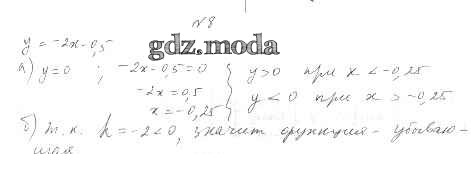 №8
y = -2x-0,5
gdz.moda
а) y=0 ; -2x-0,5=0 } y>0 при x < -0,25
-2x = 0,5
x = -0,25 } y < 0 при x > -0,25
б) т.к. k = -2<0, значит функция - убываю-
щая